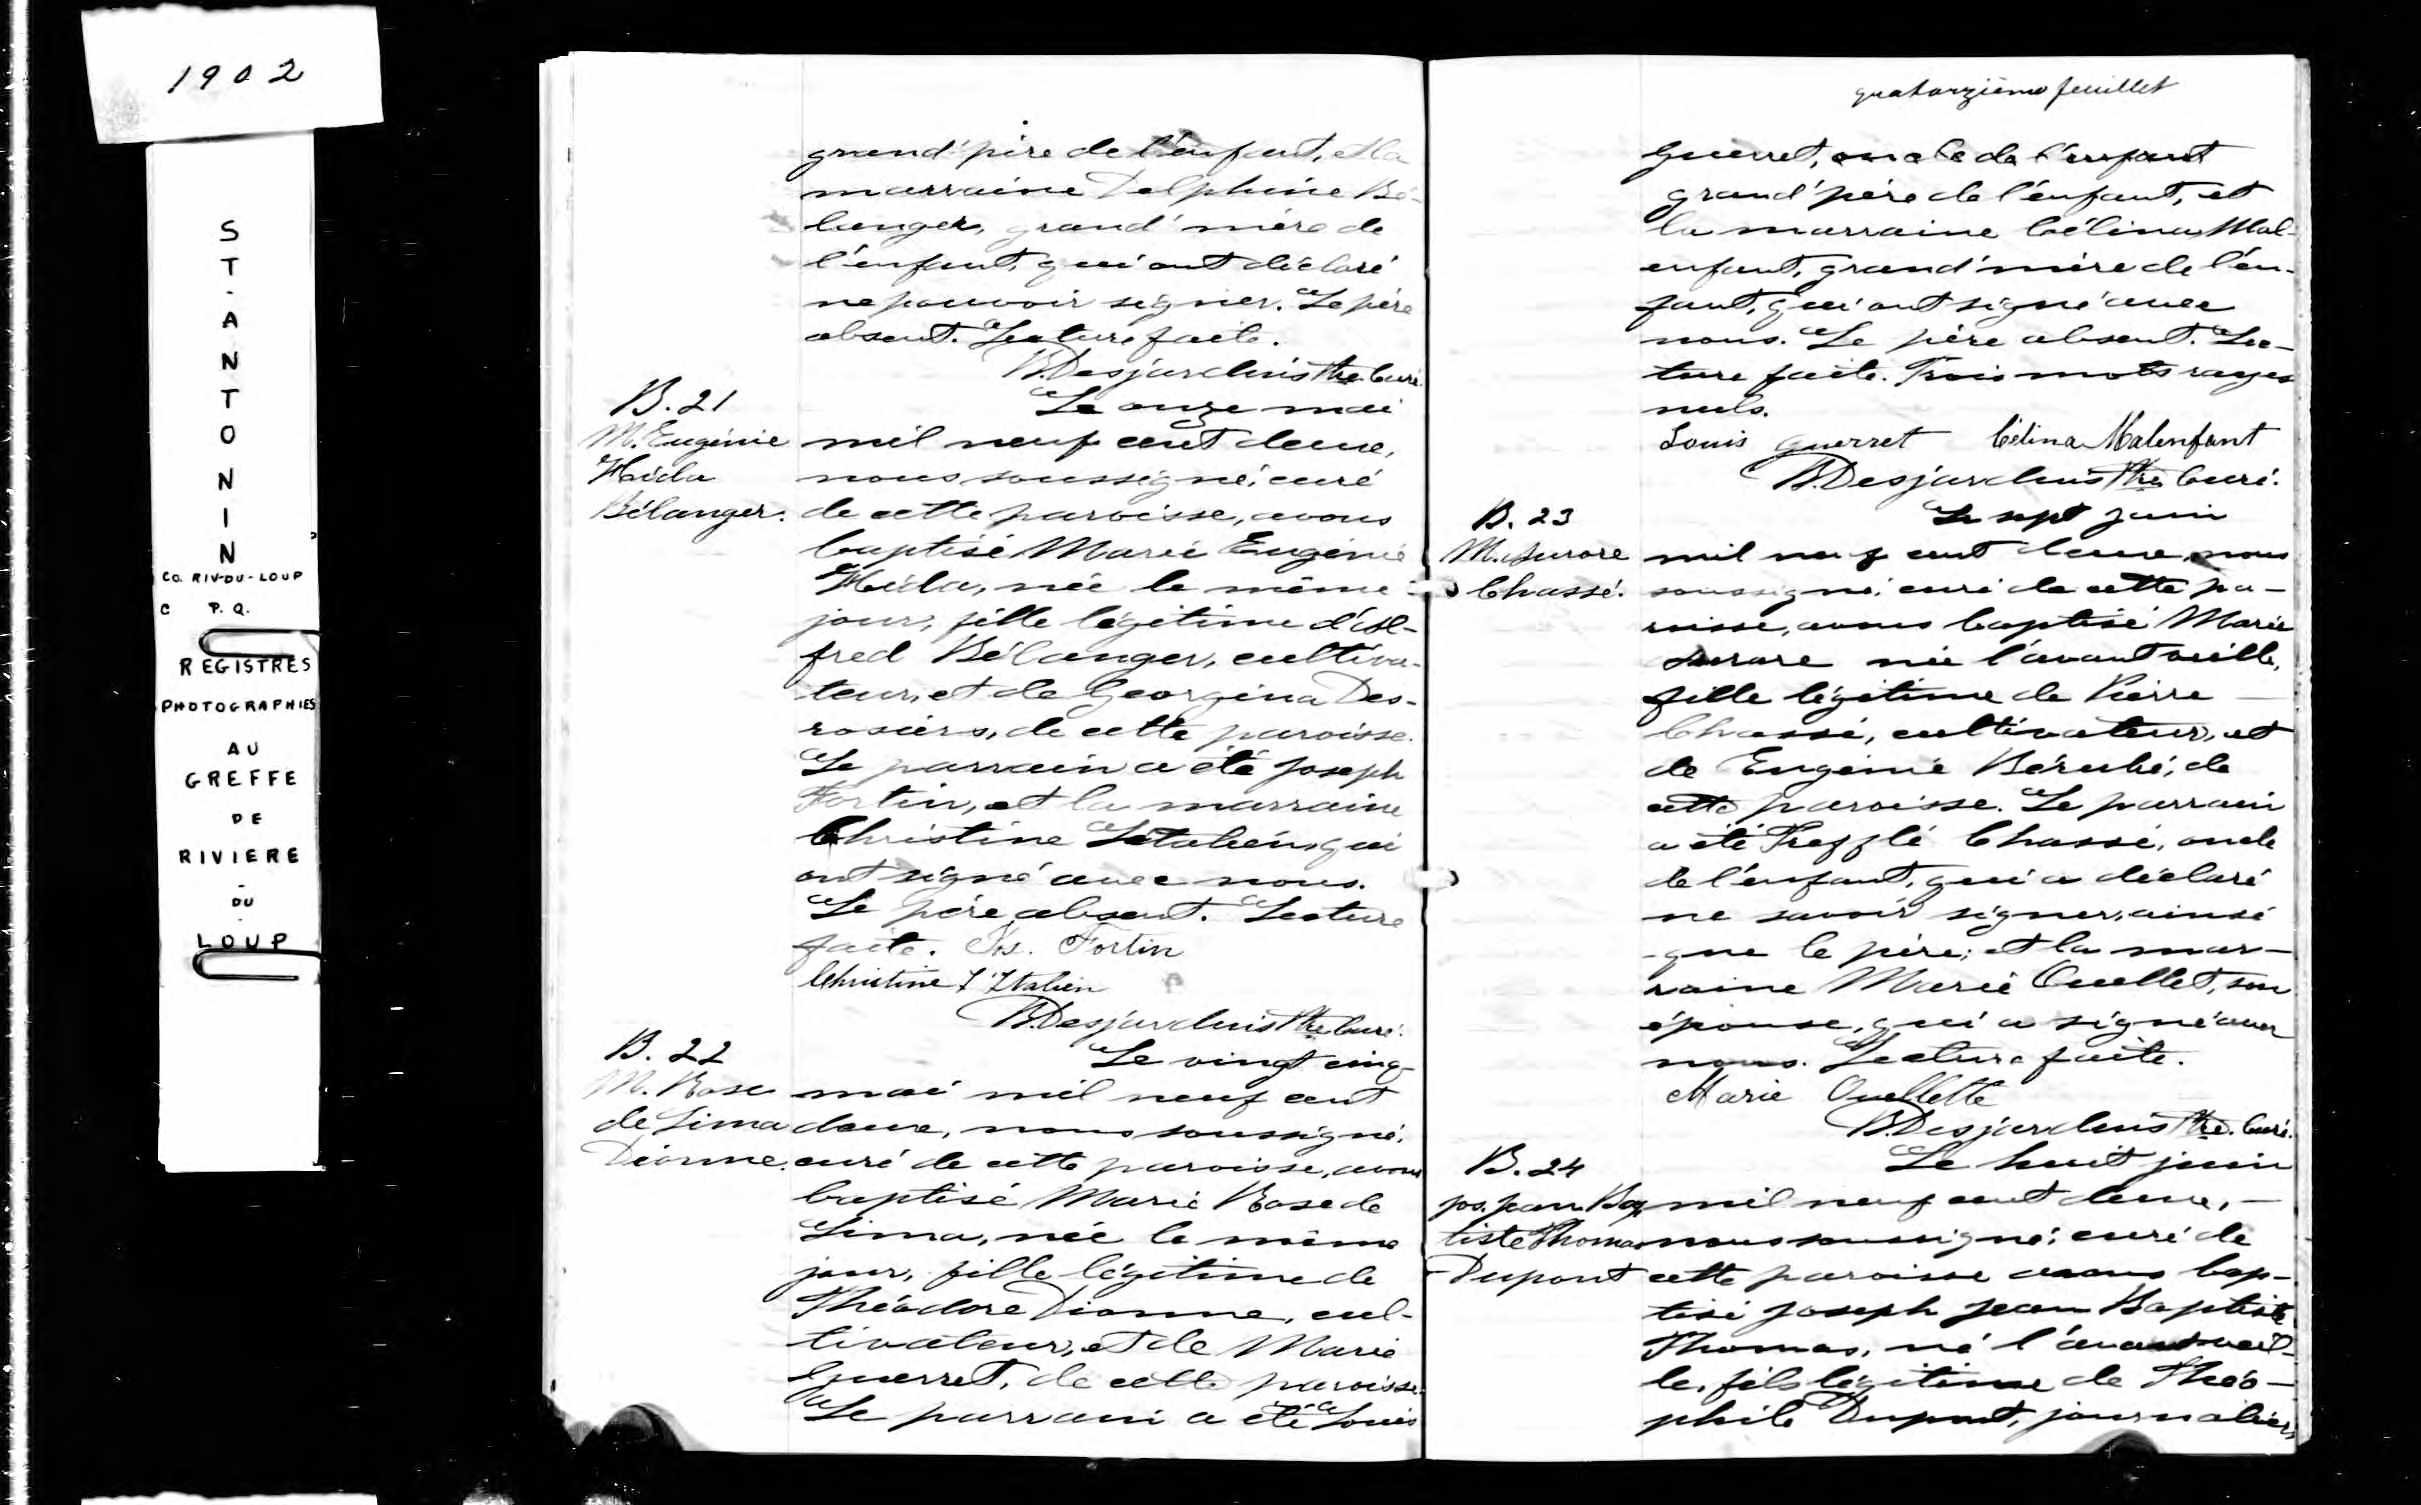 1902
ST-ANTONIN
CO. RIV-DU-LOUP
C P.Q.
REGISTRES
PHOTOGRAPHIES
AU
GREFFE
DE
RIVIERE
-
DU
LOUP
grand'père de l'enfant, et la
marraine Delphine Bé-
langer, grand'mère de
l'enfant, qui ont déclaré
ne pouvoir signer. Le père
absent. Lecture faite.
B. Desjardins Ptre Curé.
B. 21
M. Eugénie
Héda
Bélanger.
Le onze mai
mil neuf cent deux,
nous soussigné, curé
de cette paroisse, avons
baptisé Marie Eugénie
Héda, née le même
jour, fille légitime d'Al-
fred Bélanger, cultiva-
teur, et de Georgina Des-
rosiers, de cette paroisse.
Le parrain a été Joseph
Fortin, et la marraine
Christine Létalien, qui
ont signé avec nous.
Le père absent. Lecture
faite. Jos. Fortin
Christine L'Italien
B. Desjardins Ptre Curé.
B. 22
M. Rose
de Lima
Dionne.
Le vingt cinq
mai mil neuf cent
deux, nous soussigné,
curé de cette paroisse, avons
baptisé Marie Rose de
Lima, née le même
jour, fille légitime de
Théodore Dionne, cul-
tivateur, et de Marie
Guerret, de cette paroisse.
Le parrain a été Louis
quatorzième feuillet
Guerret, oncle de l'enfant
grand'père de l'enfant, et
la marraine Célina Mal-
enfant, grand'mère de l'en-
fant, qui ont signé avec
nous. Le père absent. Lec-
ture faite. Trois mots rayés
nuls.
Louis Guerret Célina Malenfant
B. Desjardins Ptre Curé.
B. 23
M. Aurore
Chassé.
Le sept juin
mil neuf cent deux, nous
soussigné, curé de cette pa-
roisse, avons baptisé Marie
Aurore née l'avant veille,
fille légitime de Pierre
Chassé, cultivateur, et
de Eugénie Bérubé, de
cette paroisse. Le parrain
a été Trefflé Chassé, oncle
de l'enfant, qui a déclaré
ne savoir signer, ainsi
que le père; et la mar-
raine Marie Ouellet, son
épouse, qui a signé avec
nous. Lecture faite.
Marie Ouellette
B. Desjardins Ptre. Curé.
B. 24
Jos. Jean Bap
tiste Thomas
Dupont
Le huit juin
mil neuf cent deux,
nous soussigné, curé de
cette paroisse avons bap-
tisé Joseph Jean Baptiste
Thomas, né l'avant veil-
le, fils légitime de Théo-
phile Dupont, journalier,